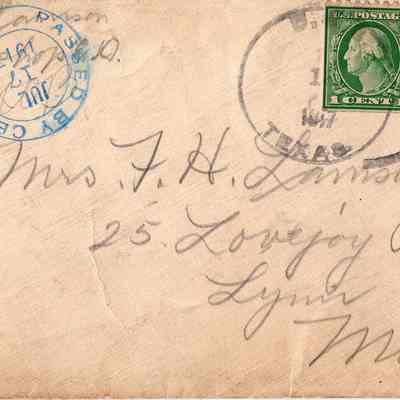 PASSED BY CE
JUL
17
191
U.S. POSTAGE
1 CENT
1917
TEXAS
Mrs. F. H. Lamso
25. Lovejoy
Lynn
M